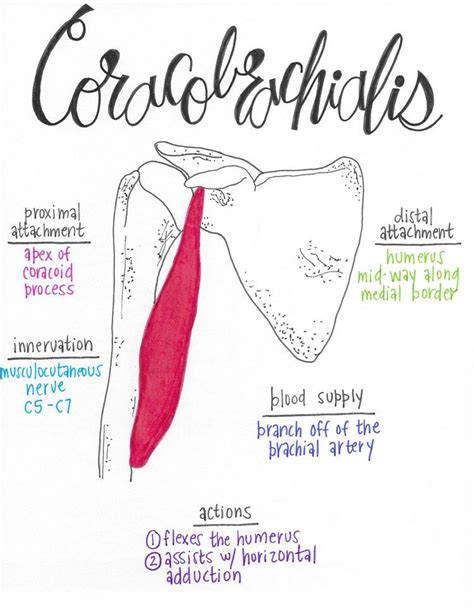 Coracobrachialis
proximal
attachment
apex of
coracoid
process
distal
attachment
humerus
mid-way along
medial border
innervation
musculocutaneous
nerve
C5-C7
blood supply
branch off of the
brachial artery
actions
① flexes the humerus
② assists w/ horizontal
adduction